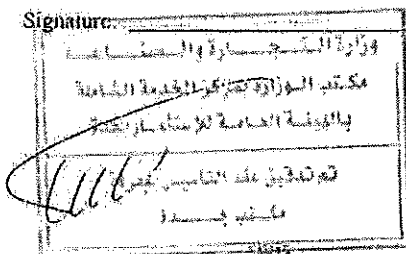 Signature:
وزارة التـجـــارة والـصنـــاعـة
مكتب الوزارة بمركز الخدمة الشاملة
بالهيئة العامة للإستثمار بجدة
تم تدقيق عقد التأسيس
مكتب جـــدة